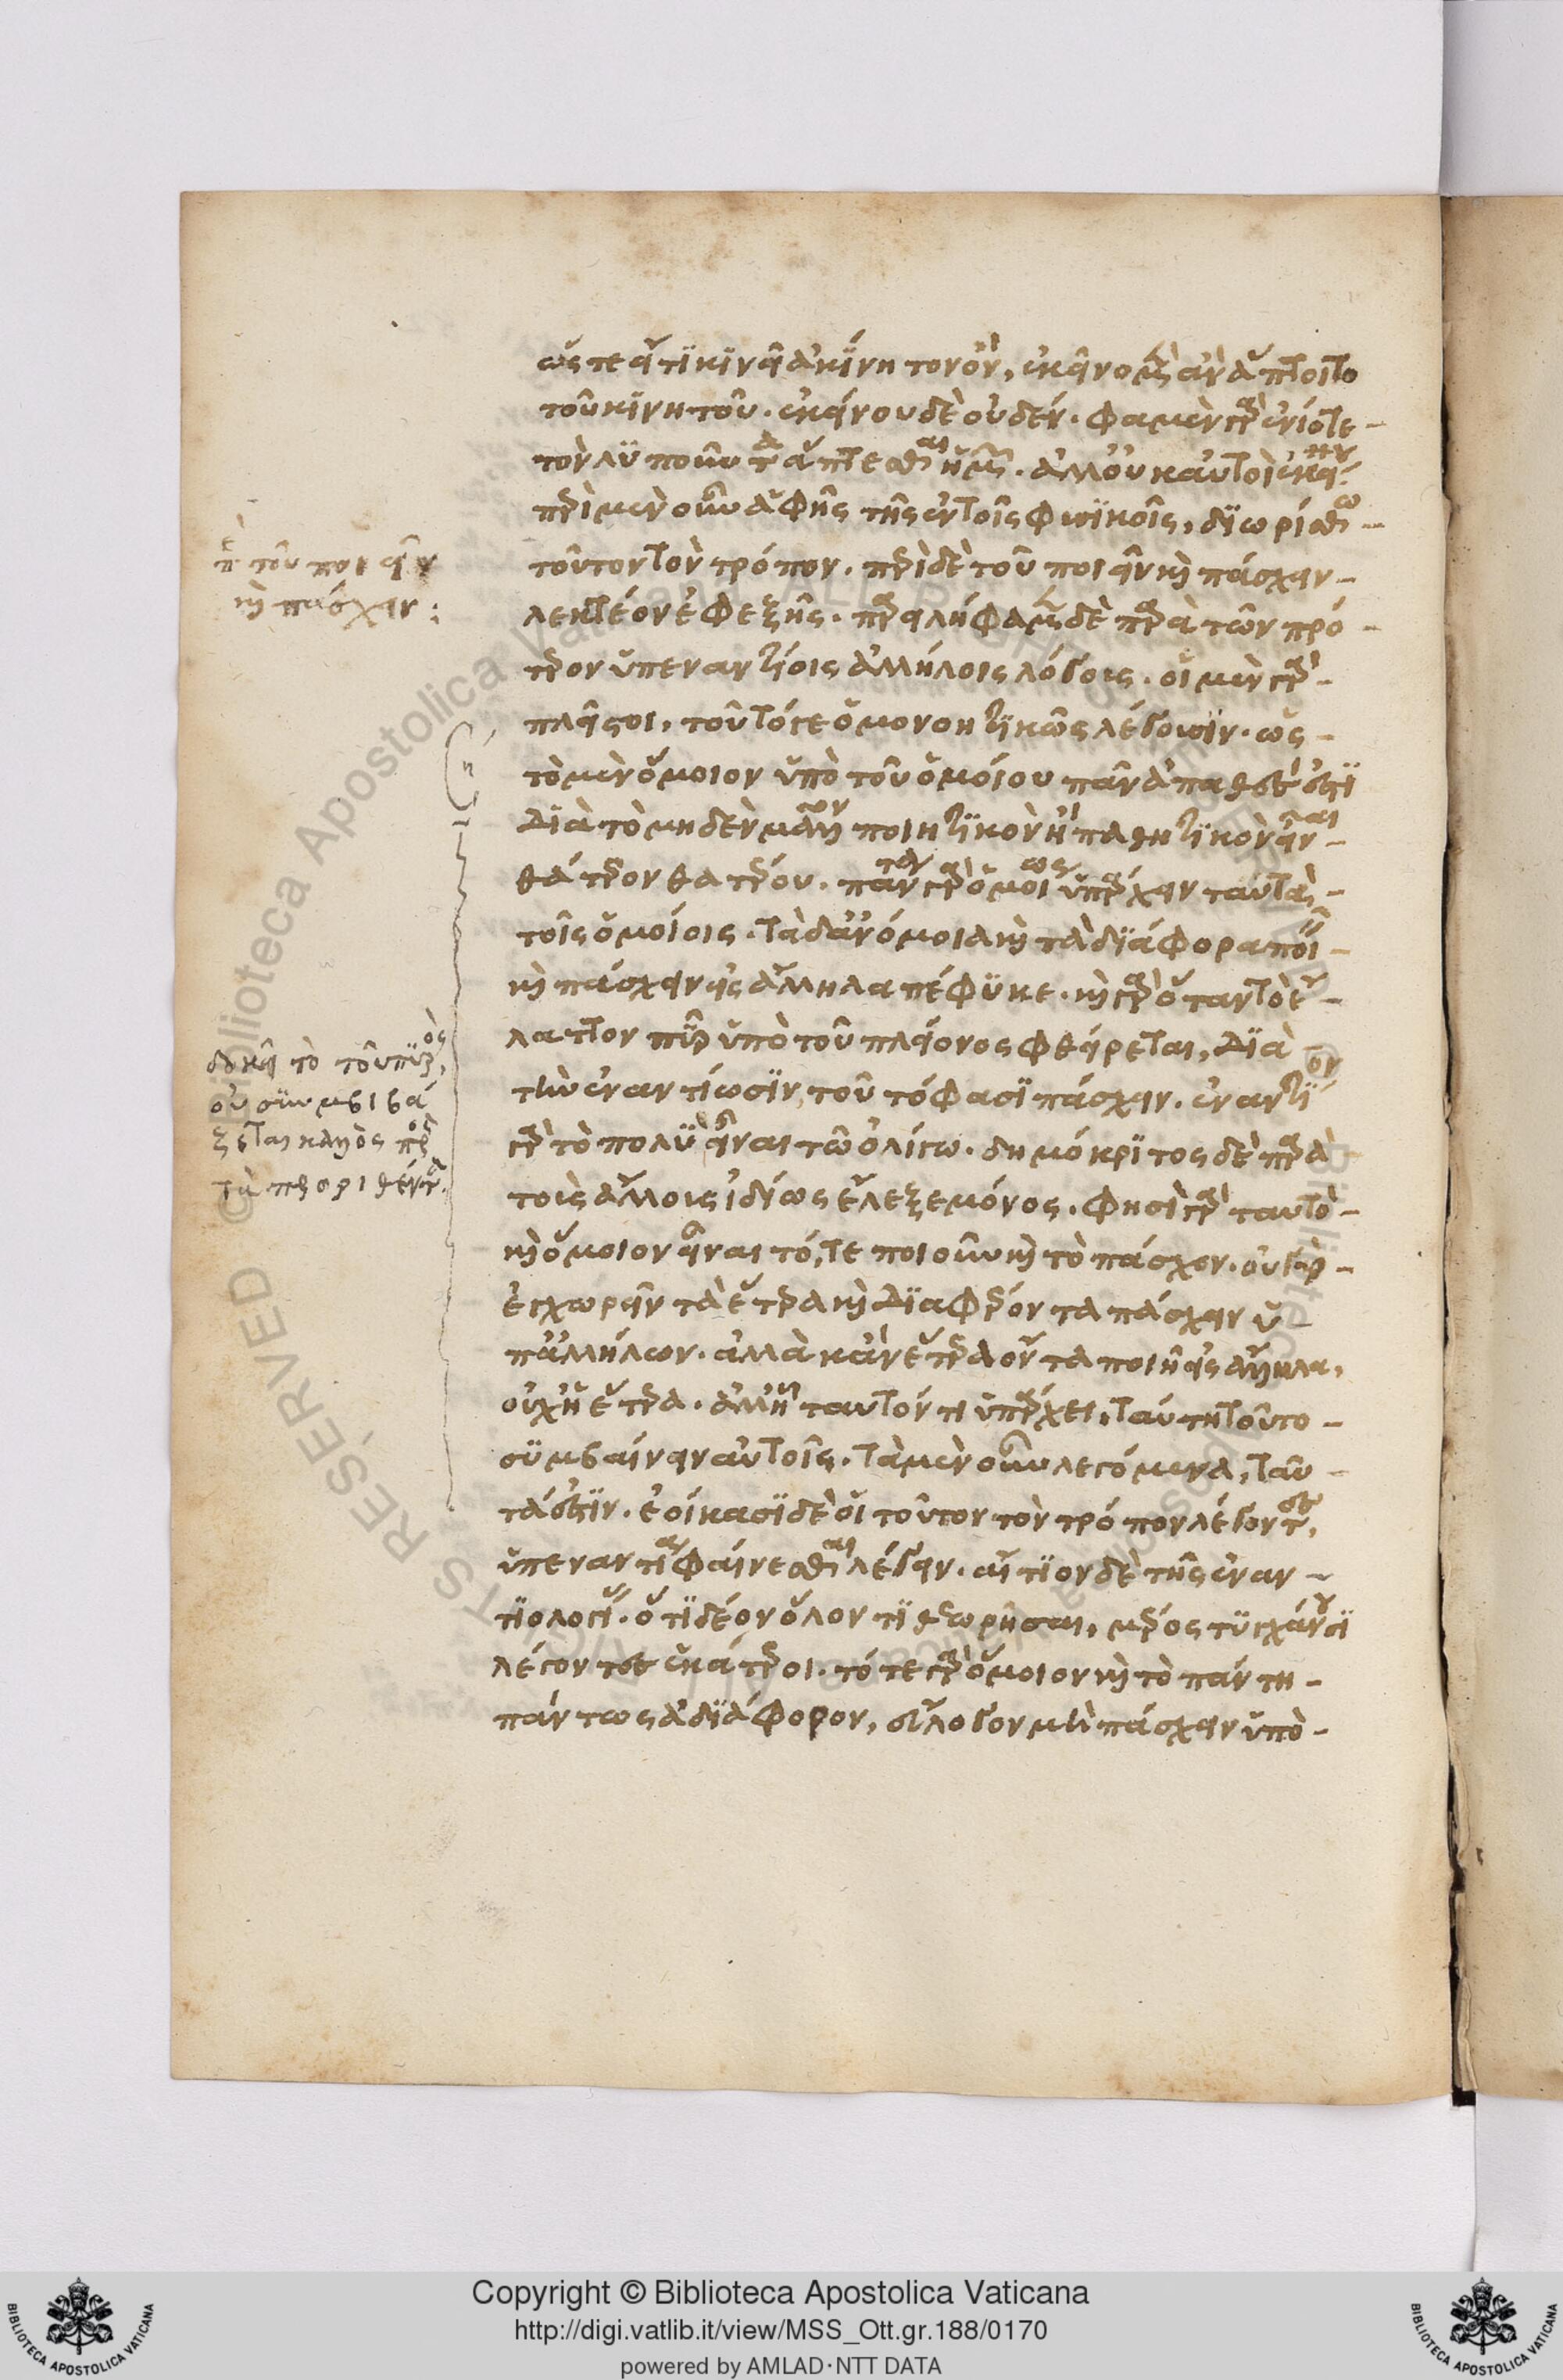 ὥστε εἴ τι κινεῖ ἀκίνητον ὄν, ἐκεῖνο μὲν ἂν ἅπτοιτο
τοῦ κινητοῦ. ἐκείνου δὲ οὐδέν. φαμὲν γὰρ ἐνίοτε
τὸν λυποῦντα ἅπτεσθαι ἡμῶν. ἀλλ' οὐκ αὐτοὶ ἐκείνου.
περὶ μὲν οὖν ἁφῆς τῆς ἐν τοῖς φυσικοῖς, διωρίσθω
τοῦτον τὸν τρόπον. περὶ δὲ τοῦ ποιεῖν καὶ πάσχειν
λεκτέον ἐφεξῆς. παρειλήφαμεν δὲ παρὰ τῶν πρό
τερον ὑπεναντίοις ἀλλήλοις λόγοις. οἱ μὲν γὰρ
πλεῖστοι, τοῦτό γε ὁμονοητικῶς λέγουσιν. ὡς
τὸ μὲν ὅμοιον ὑπὸ τοῦ ὁμοίου πᾶν ἀπαθές ἐστι
διὰ τὸ μηδὲν μᾶλλον ποιητικὸν ἢ παθητικὸν εἶναι
θάτερον θατέρου. πάντα γὰρ ὁμοίως ὑπάρχειν ταὐτὰ
τοῖς ὁμοίοις. τὰ δ' ἀνόμοια καὶ τὰ διάφορα ποιεῖν
καὶ πάσχειν εἰς ἄλληλα πέφυκε. καὶ γὰρ ὅταν τὸ ἔ
λαττον πῦρ ὑπὸ τοῦ πλείονος φθείρεται, διὰ
τὴν ἐναντίωσιν, τοῦτό φασι πάσχειν. ἐναντίον
γὰρ τὸ πολὺ εἶναι τῶ ὀλίγω. δημόκριτος δὲ παρὰ
τοὺς ἄλλους ἰδίως ἔλεξε μόνος. φησὶ γὰρ ταυτὸ
καὶ ὅμοιον εἶναι τό, τε ποιοῦν καὶ τὸ πάσχον. οὐ γὰρ
ἐγχωρεῖν τὰ ἕτερα καὶ διαφέροντα πάσχειν ὑ
π' ἀλλήλων. ἀλλὰ κἂν ἕτερα ὄντα ποιῆ εἰς ἄλληλα,
οὐχ ἧ ἕτερα. ἀλλ' ἧ ταυτόν τι ὑπάρχει, ταύτη τοῦτο
συμβαίνειν αὐτοῖς. τὰ μὲν οὖν λεγόμενα, ταῦ
τά ἐστιν. ἐοίκασι δὲ οἱ τοῦτον τὸν τρόπον λέγοντες,
ὑπεναντία φαίνεσθαι λέγειν. αἴτιον δὲ τῆς ἐναν
τιολογίας. ὅτι δέον ὅλον τι θεωρῆσαι, μέρος τυγχάνουσι
λέγοντες ἑκάτεροι. τό τε γὰρ ὅμοιον καὶ τὸ πάντη
πάντως ἀδιάφορον, εὔλογον μὴ πάσχειν ὑπὸ
περὶ τοῦ ποιεῖν
καὶ πάσχειν:
δοκεῖ τὸ τοῦ πυρὸς,
Copyright © Biblioteca Apostolica Vaticana
http://digi.vatlib.it/view/MSS_Ott.gr.188/0170
powered by AMLAD·NTT DATA
BIBLIOTECA APOSTOLICA VATICANA
BIBLIOTECA APOSTOLICA VATICANA